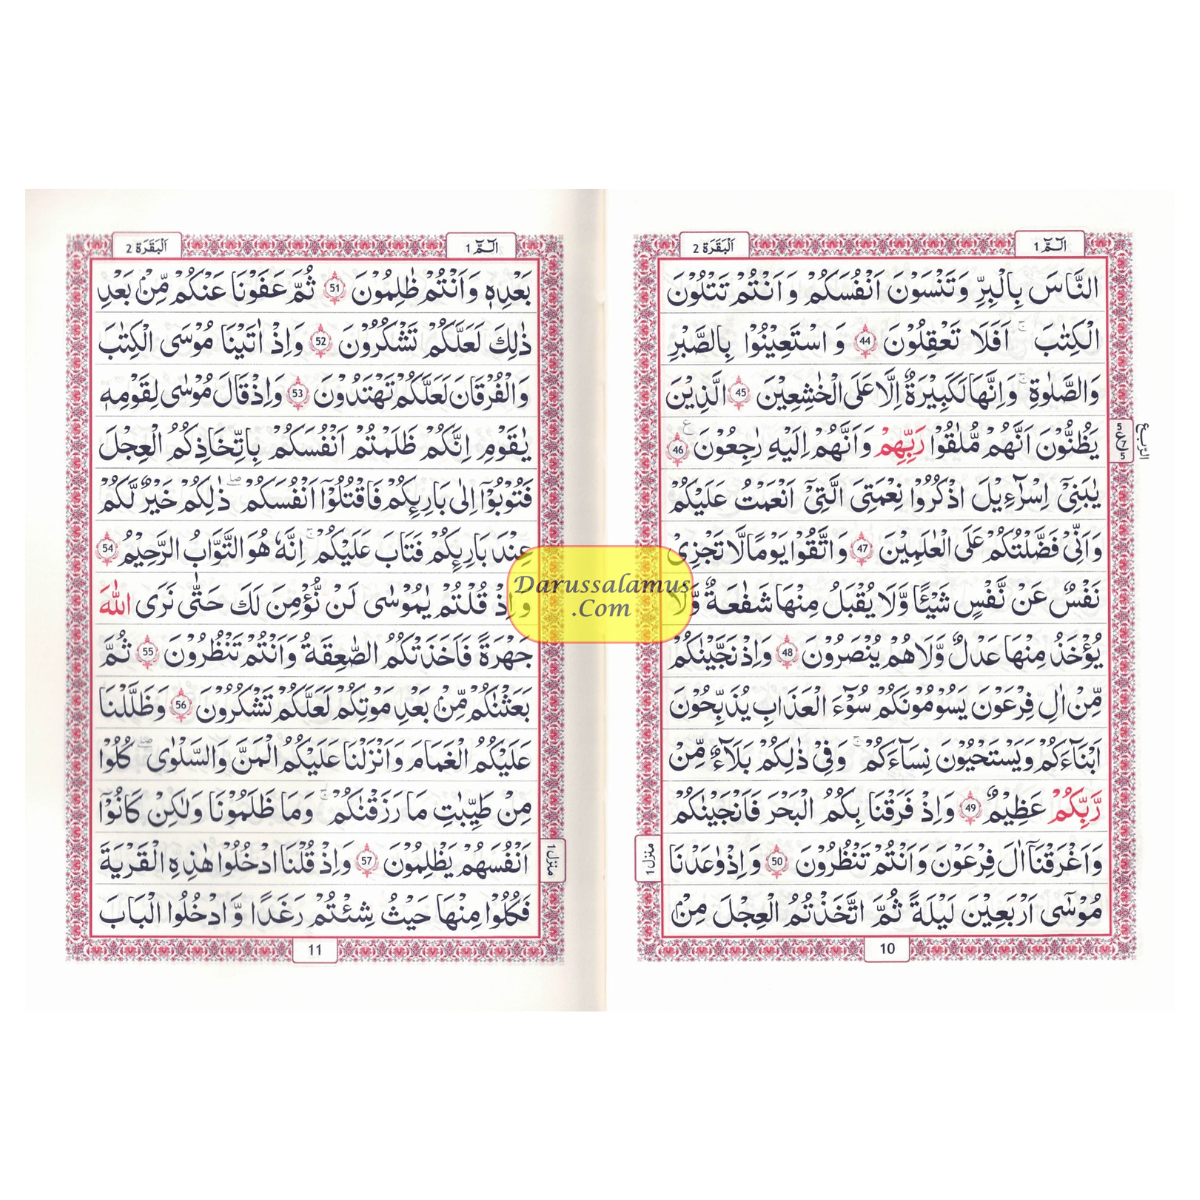 الٓمّٓ 1
اَلْبَقَرَة 2
النَّاسَ بِالْبِرِّ وَتَنْسَوْنَ اَنْفُسَكُمْ وَاَنْتُمْ تَتْلُوْنَ
الْكِتٰبَ ۚ اَفَلَا تَعْقِلُوْنَ 44 وَاسْتَعِيْنُوْا بِالصَّبْرِ
وَالصَّلٰوةِ ۚ وَاِنَّهَا لَكَبِيْرَةٌ اِلَّا عَلَى الْخٰشِعِيْنَ 45 الَّذِيْنَ
يَظُنُّوْنَ اَنَّهُمْ مُّلٰقُوْا رَبِّهِمْ وَاَنَّهُمْ اِلَيْهِ رٰجِعُوْنَ 46 ع
يٰبَنِيْٓ اِسْرَآءِيْلَ اذْكُرُوْا نِعْمَتِيَ الَّتِيْٓ اَنْعَمْتُ عَلَيْكُمْ
وَاَنِّيْ فَضَّلْتُكُمْ عَلَى الْعٰلَمِيْنَ 47 وَاتَّقُوْا يَوْمًا لَّا تَجْزِيْ
نَفْسٌ عَنْ نَّفْسٍ شَيْئًا وَّلَا يُقْبَلُ مِنْهَا شَفَاعَةٌ وَّلَا
يُؤْخَذُ مِنْهَا عَدْلٌ وَّلَا هُمْ يُنْصَرُوْنَ 48 وَاِذْ نَجَّيْنٰكُمْ
مِّنْ اٰلِ فِرْعَوْنَ يَسُوْمُوْنَكُمْ سُوْٓءَ الْعَذَابِ يُذَبِّحُوْنَ
اَبْنَآءَكُمْ وَيَسْتَحْيُوْنَ نِسَآءَكُمْ ۚ وَفِيْ ذٰلِكُمْ بَلَآءٌ مِّنْ
رَّبِّكُمْ عَظِيْمٌ 49 وَاِذْ فَرَقْنَا بِكُمُ الْبَحْرَ فَاَنْجَيْنٰكُمْ
وَاَغْرَقْنَآ اٰلَ فِرْعَوْنَ وَاَنْتُمْ تَنْظُرُوْنَ 50 وَاِذْ وٰعَدْنَا
مُوْسٰٓى اَرْبَعِيْنَ لَيْلَةً ثُمَّ اتَّخَذْتُمُ الْعِجْلَ مِنْۢ
10
الربع
5 ع 7 5
منزل 1
الٓمّٓ 1
اَلْبَقَرَة 2
بَعْدِهٖ وَاَنْتُمْ ظٰلِمُوْنَ 51 ثُمَّ عَفَوْنَا عَنْكُمْ مِّنْۢ بَعْدِ
ذٰلِكَ لَعَلَّكُمْ تَشْكُرُوْنَ 52 وَاِذْ اٰتَيْنَا مُوْسَى الْكِتٰبَ
وَالْفُرْقَانَ لَعَلَّكُمْ تَهْتَدُوْنَ 53 وَاِذْ قَالَ مُوْسٰى لِقَوْمِهٖ
يٰقَوْمِ اِنَّكُمْ ظَلَمْتُمْ اَنْفُسَكُمْ بِاتِّخَاذِكُمُ الْعِجْلَ
فَتُوْبُوْٓا اِلٰى بَارِئِكُمْ فَاقْتُلُوْٓا اَنْفُسَكُمْ ۖ ذٰلِكُمْ خَيْرٌ لَّكُمْ
عِنْدَ بَارِئِكُمْ فَتَابَ عَلَيْكُمْ ۚ اِنَّهٗ هُوَ التَّوَّابُ الرَّحِيْمُ 54
وَاِذْ قُلْتُمْ يٰمُوْسٰى لَنْ نُّؤْمِنَ لَكَ حَتّٰى نَرَى اللّٰهَ
جَهْرَةً فَاَخَذَتْكُمُ الصّٰعِقَةُ وَاَنْتُمْ تَنْظُرُوْنَ 55 ثُمَّ
بَعَثْنٰكُمْ مِّنْۢ بَعْدِ مَوْتِكُمْ لَعَلَّكُمْ تَشْكُرُوْنَ 56 وَظَلَّلْنَا
عَلَيْكُمُ الْغَمَامَ وَاَنْزَلْنَا عَلَيْكُمُ الْمَنَّ وَالسَّلْوٰى ۖ كُلُوْا
مِنْ طَيِّبٰتِ مَا رَزَقْنٰكُمْ ۚ وَمَا ظَلَمُوْنَا وَلٰكِنْ كَانُوْٓا
اَنْفُسَهُمْ يَظْلِمُوْنَ 57 وَاِذْ قُلْنَا ادْخُلُوْا هٰذِهِ الْقَرْيَةَ
فَكُلُوْا مِنْهَا حَيْثُ شِئْتُمْ رَغَدًا وَّادْخُلُوا الْبَابَ
11
منزل 1
Darussalamus
.Com